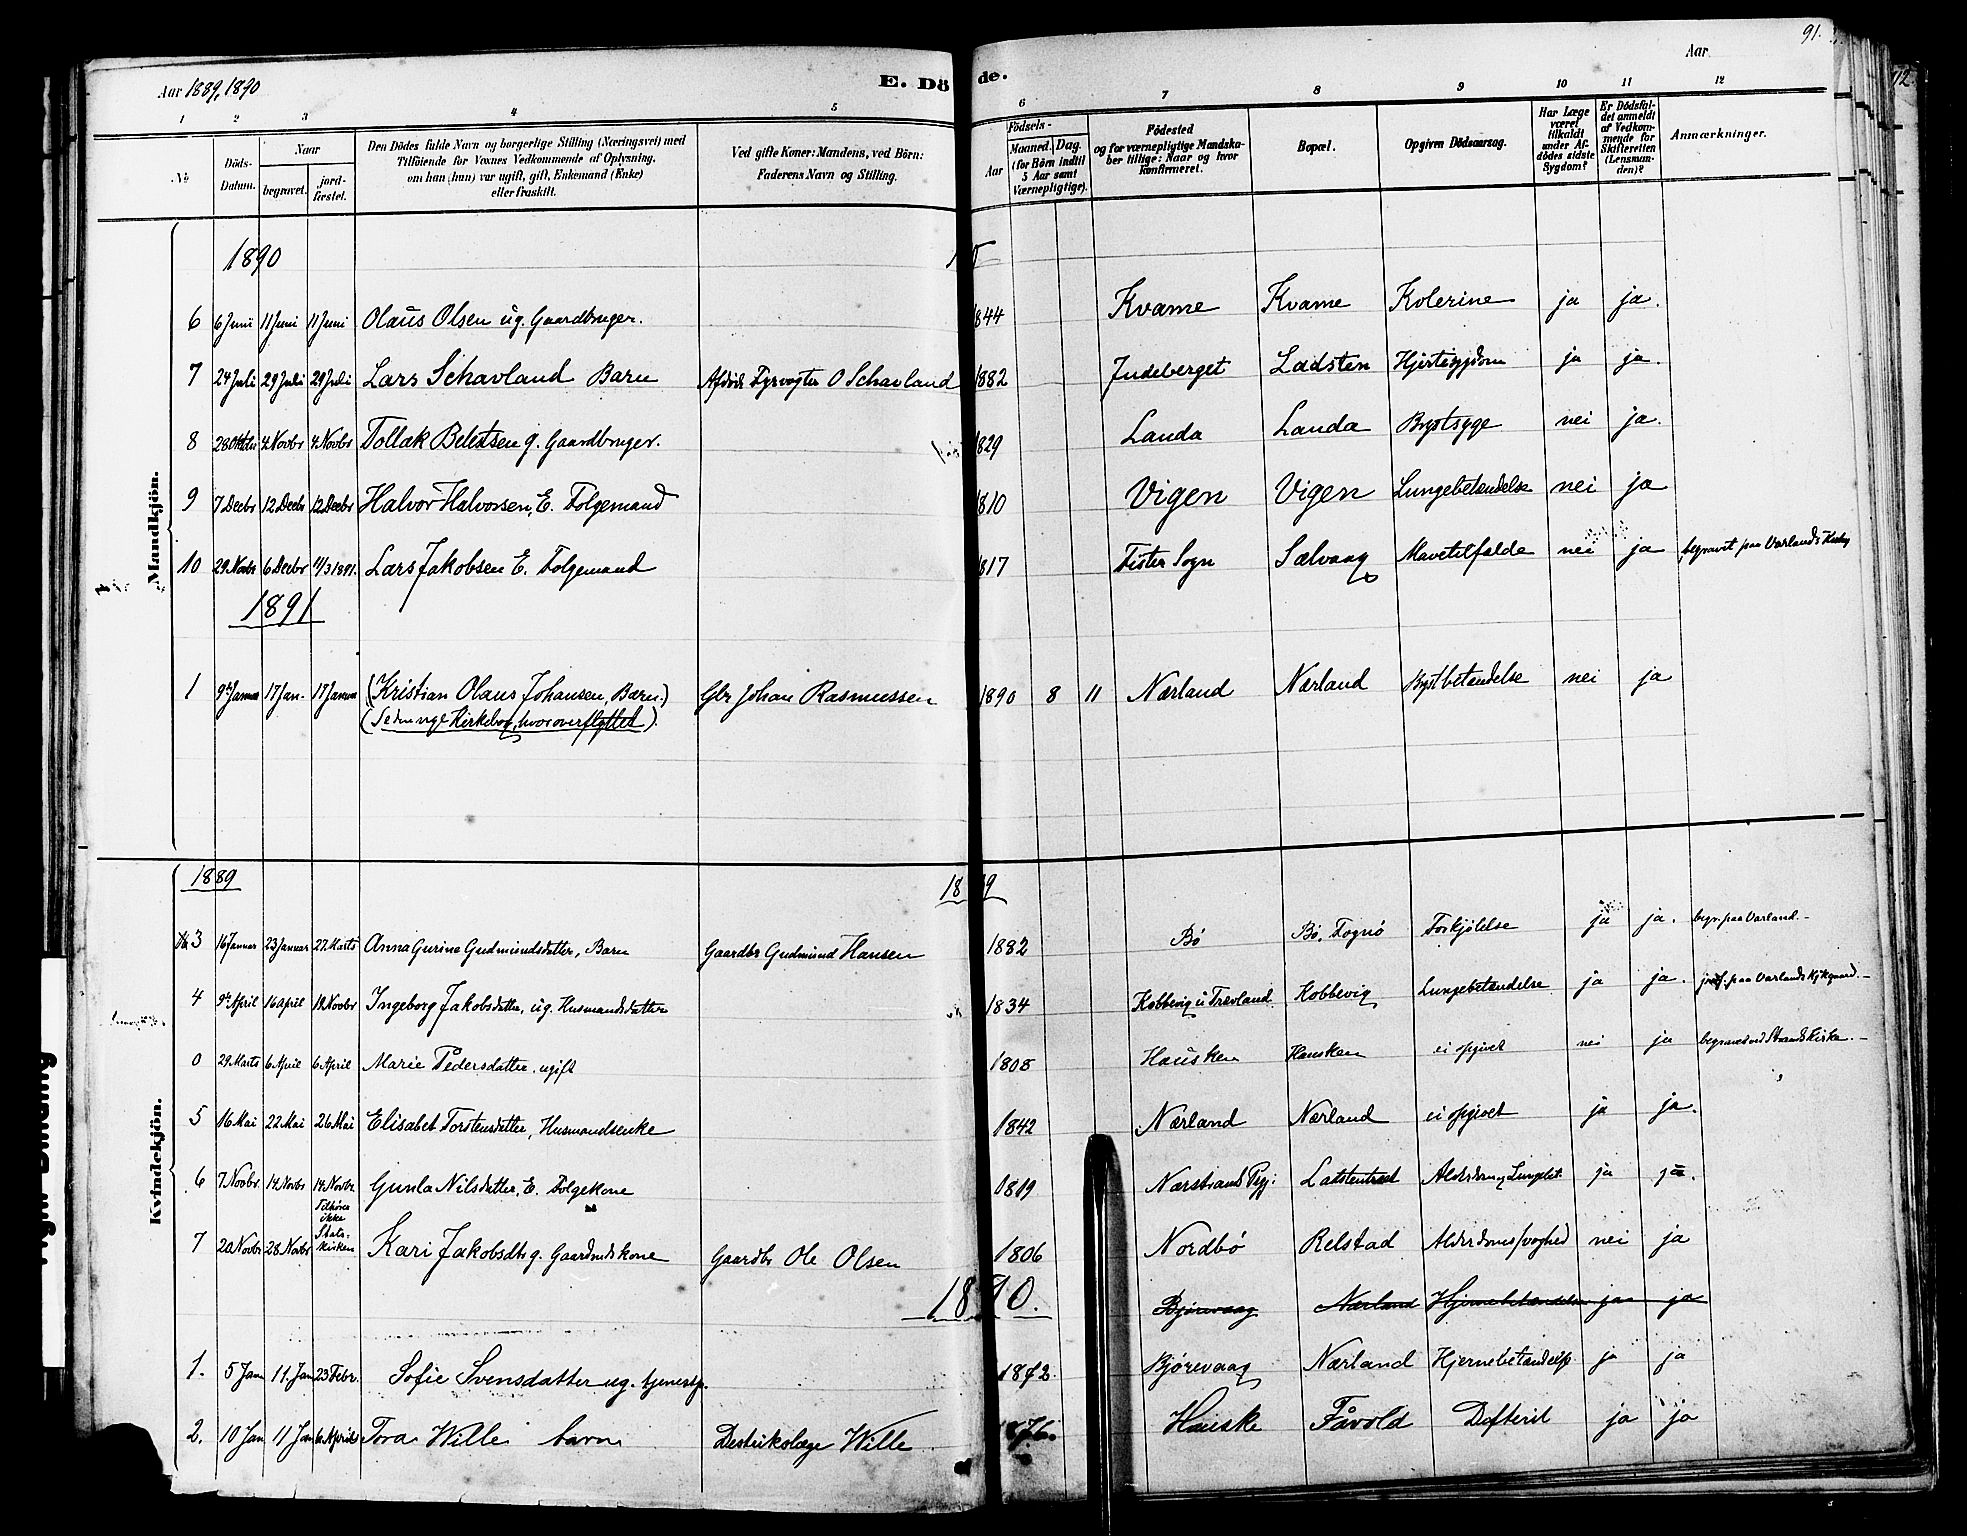 91.
Aar 1889, 1890 E. Dö de. Aar
1 2 3 4 5 6 7 8 9 10 11 12
No Döds-Datum. Naar begravet. jord-fæstet. Den Dödes fulde Navn og borgerlige Stilling (Næringsvei) med Tilföiende for Voxnes Vedkommende af Oplysning, om han (hun) var ugift, gift, Enkemand (Enke) eller fraskilt. Ved gifte Koner: Mandens, ved Börn: Faderens Navn og Stilling. Födsels- Aar Maaned. Dag. (for Börn indtil 5 Aar samt Værnepligtige). Födested og for værnepligtige Mandskaber tillige: Naar og hvor konfirmeret. Bopæl. Opgiven Dödsaarsag. Har Læge været tilkaldt under Afdödes sidste Sygdom? Er Dödsfaldet anmeldt af Vedkommende for Skifteretten (Lensmanden)? Anmærkninger.
Mandkjön.
1890
6 6 Juni 11 Juni 11 Juni Olaus Olsen ug. Gaardbruger. 1844 Kvame Kvame Kolerine ja ja.
7 24 Juli 29 Juli 29 Juli Lars Schavland Barn Afdöde Fyrvogter O Schavland 1882 Judeberget Ladsten Hjertesygdom ja ja.
8 28 Oktbr 4 Novbr 4 Novbr Tollak g. Gaardbruger. 1829 Landa Landa Brystsyge nei ja.
9 7 Decbr 12 Decbr 12 Decbr Halvor Halvorsen, E. Folgemand 1810 Vigen Vigen Lungebetændelse nei ja
10 29 Novbr 6 Decbr 11/3 1891. Lars Jakobsen E. Folgemand 1817 Fister Sogn Sælvaag Mavetilfælde nei ja begravet paa Varlands
1891
1 9de Januar 17 Jan. 17 Januar (Kristian Olaus Johansen, Barn.) Gbr Johan Rasmussen 1890 8 11 Nærland Nærland Brystbetændelse nei ja
(Se den nye Kirkebog, hvor overflyttet).
Kvindekjön.
1889 18 9
3 16 Januar 23 Januar 27. Marts Anna Gurine Gudmundsdatter, Barn Gaardbr Gudmund Hansen 1882 Bö Bö, Fognö Forkjölelse ja ja. begr. paa Varland. -
4 9de April 16 April 12 Novbr Ingeborg Jakobsdatter, ug. Husmandsdatter 1834 Kobbevig u Trævland Kobbevig Lungebetændelse ja ja. jordf. paa Varlands Kjkgaard. -
0 29 Marts 6 April 6 April Marie Pedersdatter. ugift 1808 Hausken Hausken ei opgivet nei ja begravet ved Strands Kirke. -
5 16 Mai 22 Mai 26 Mai Elisabet Torstensdatter, Husmandsenke 1842 Nærland Nærland ei opgivet ja ja.
6 7 Novbr 14 Novbr 14. Novbr Gunla Nilsdatter, E. Folgekone 1819 Nærstrand Pgj: Alderdom og Lungebet. ja ja.
7 20 Novbr 28 Novbr Tilhörer ikke Stats-Kirken Kari Jakobsdtr g. Gaardmdskone Gaardbr Ole Olsen 1806 Nordbö Relstad Alderdomssvaghed nei ja
1890.
Bjørevaag Nærland Hjernebetændelse ja ja
1. 5 Jan 11. Jan 23 Febr. Sofie Svensdatter ug. tjenestp. 1872. Bjørevaag Nærland Hjernebetændelse ja ja
2. 10 Jan 11 Jan 6 April Tora Wille barn Destriktslæge Wille 1876. Hauske Fåvold Defterit ja ja